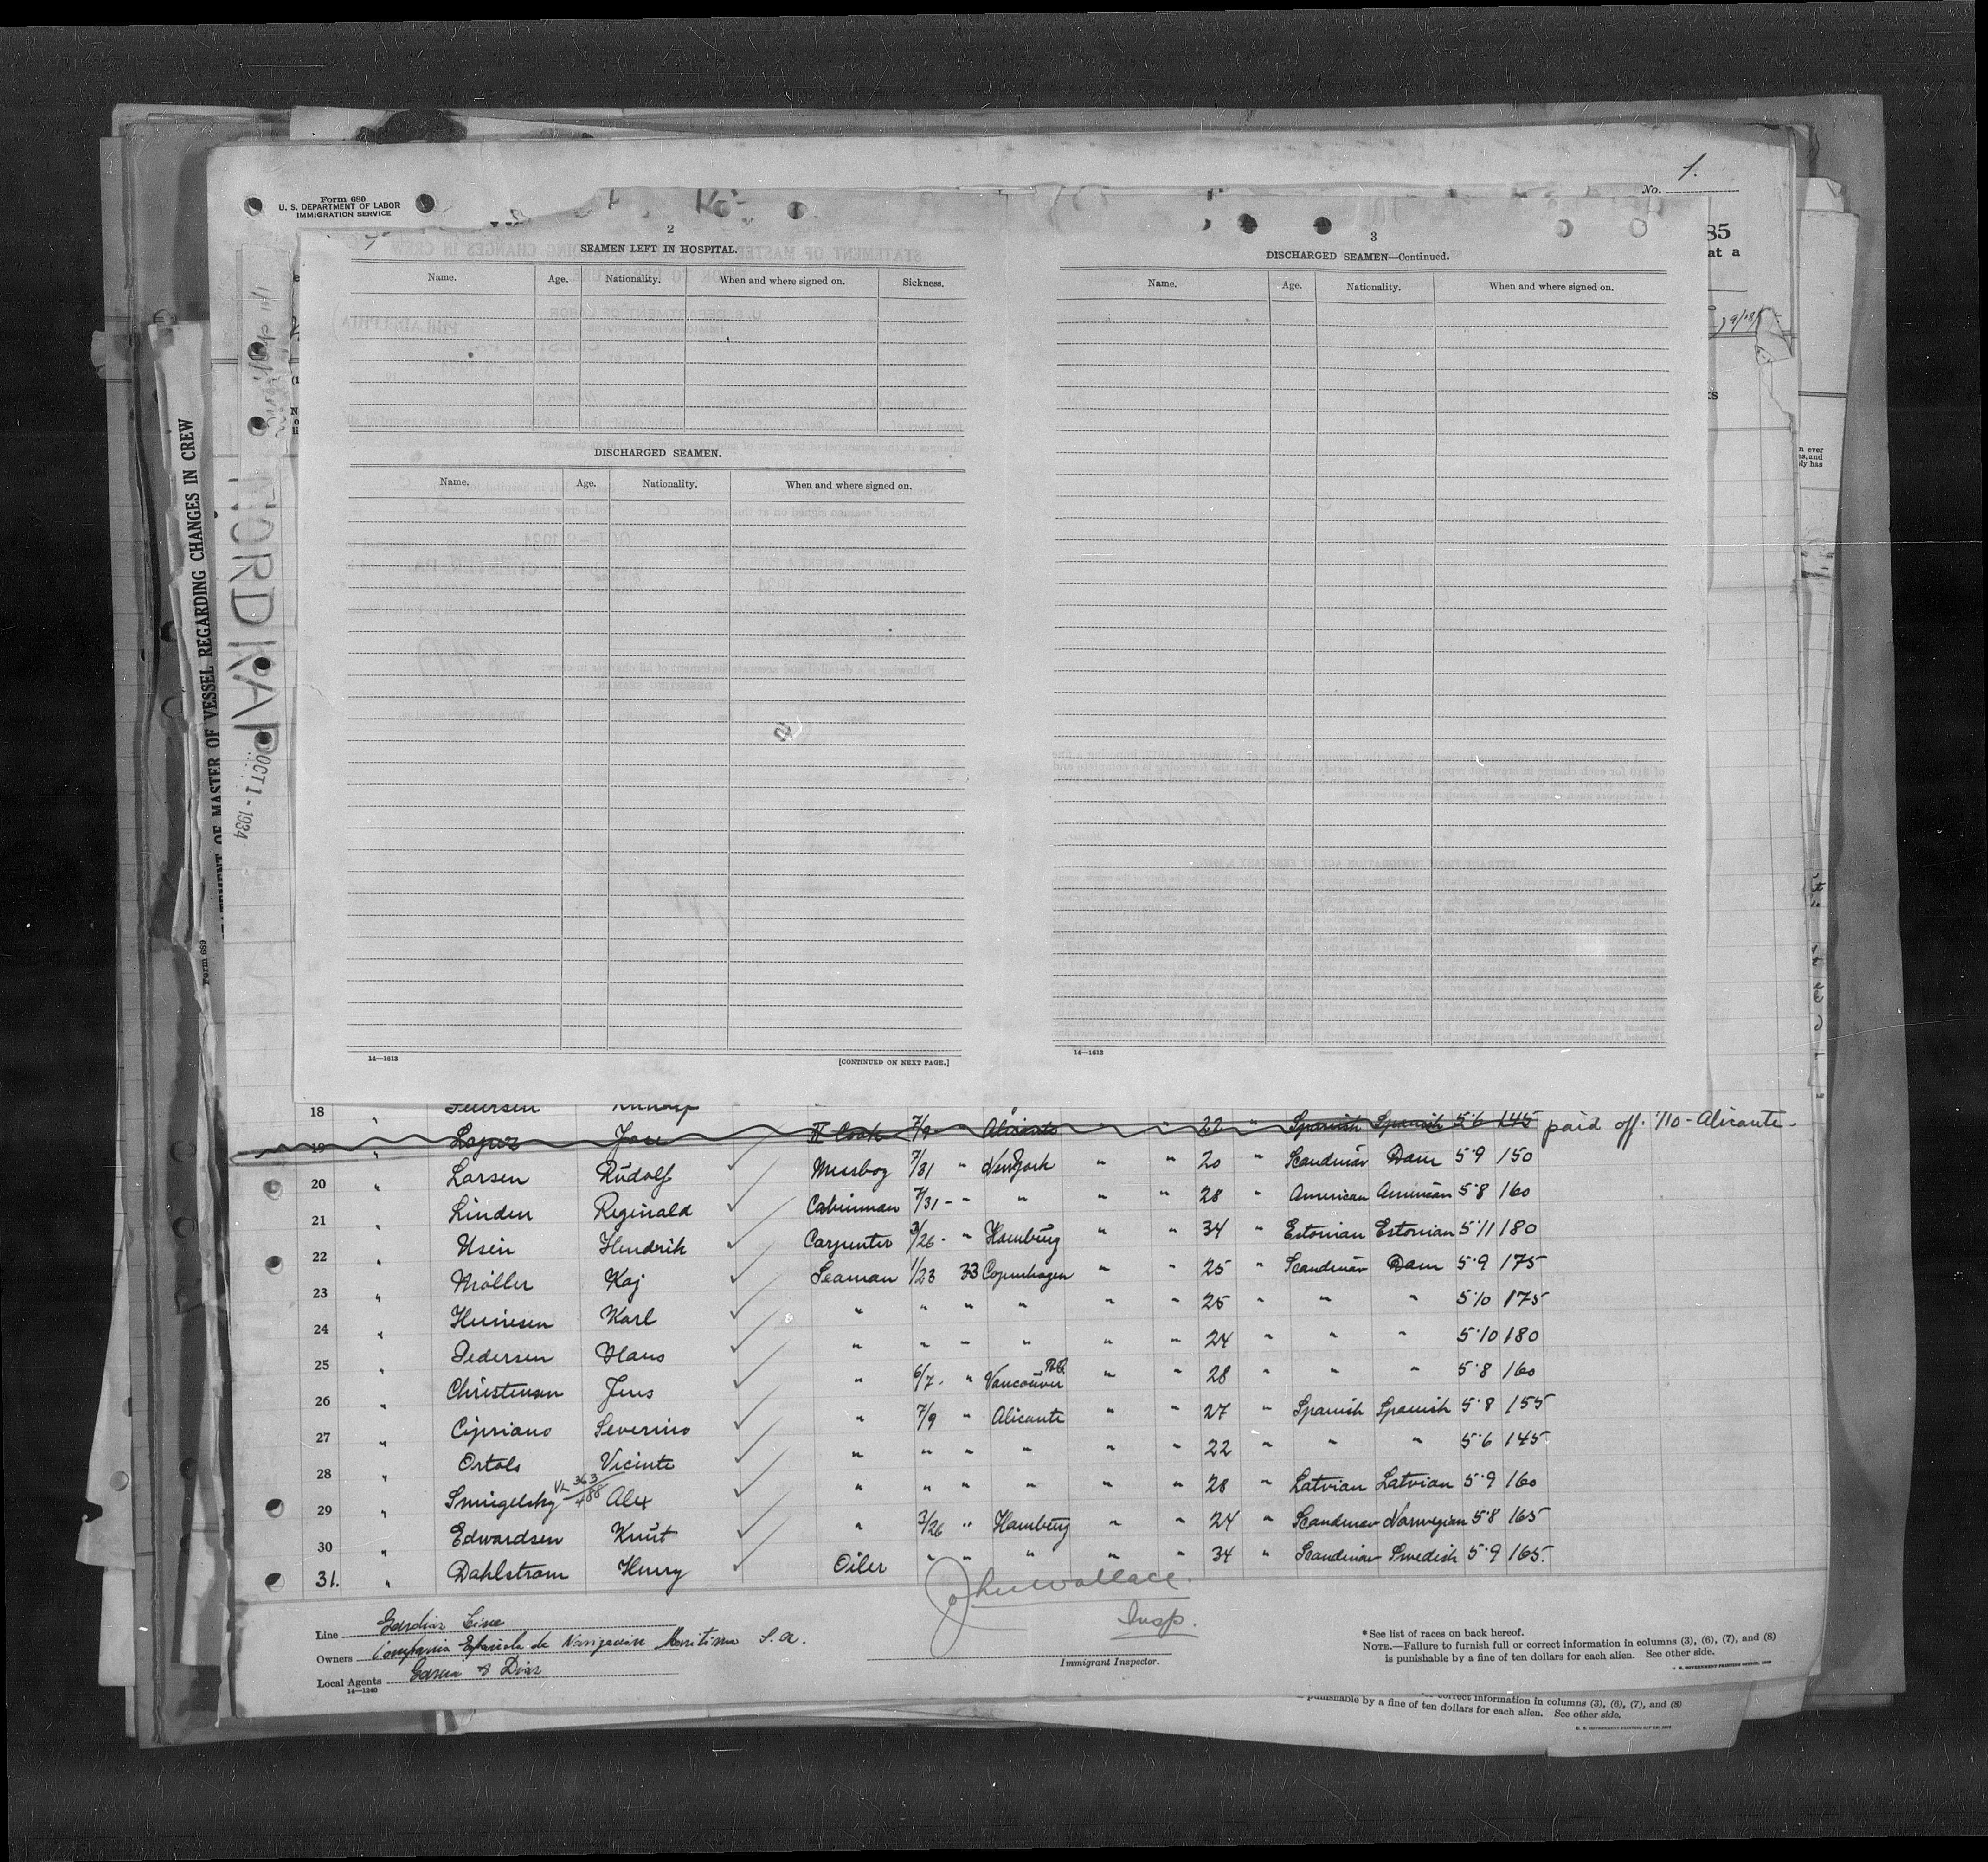 Form 680
U. S. DEPARTMENT OF LABOR
IMMIGRATION SERVICE
No. 1.
85
at a
2
SEAMEN LEFT IN HOSPITAL.
Name. Age. Nationality. When and where signed on. Sickness.
DISCHARGED SEAMEN.
Name. Age. Nationality. When and where signed on.
14—1613
[CONTINUED ON NEXT PAGE.]
3
DISCHARGED SEAMEN—Continued.
Name. Age. Nationality. When and where signed on.
14—1613
STATEMENT OF MASTER OF VESSEL REGARDING CHANGES IN CREW
Form 689
NORDKAP
OCT 1 - 1934
n ever
es, and
ly has
18
19 " Lopez Jose II Cook 7/9 Alicante " " 22 " Spanish Spanish 5'6 145 paid off. 7/10 - Alicante -
20 " Larsen Rudolf Messboy 7/31 " New York " " 20 " Scandinav Dane 5'9 150
21 " Linden Reginald Cabinman 7/31 - " " " " 28 " American American 5'8 160
22 " Usin Hendrik Carpenter 3/26 - " Hamburg " " 34 " Estonian Estonian 5'11 180
23 " Möller Kaj Seaman 1/23 33 Copenhagen " " 25 " Scandinav Dane 5'9 175
24 " Heinesen Karl " " " " " " 25 " " " 5'10 175
25 " Pedersen Hans " " " " " " 24 " " " 5'10 180
26 " Christensen Jens " 6/7 - " Vancouver " " 28 " " " 5'8 160
27 " Cipriano Severino " 7/9 " Alicante " " 27 " Spanish Spanish 5'8 155
28 " Ortols Vicinte " " " " " " 22 " " " 5'6 145
29 " Smigelsky 363/488 Alex " " " " " " 28 " Latvian Latvian 5'9 160
30 " Edwardsen Knut " 3/26 " Hamburg " " 24 " Scandinav Norwegian 5'8 165
31. " Dahlstrom Henry Oiler " " " " " 34 " Scandinav Swedish 5'9 165.
John Wallace.
Insp.
Immigrant Inspector.
Line Gardiaz Line
Owners Compania Española de Navigacion Maritima S.A.
Local Agents Garcia & Diaz
14—1240
*See list of races on back hereof.
NOTE.—Failure to furnish full or correct information in columns (3), (6), (7), and (8)
is punishable by a fine of ten dollars for each alien. See other side.
U. S. GOVERNMENT PRINTING OFFICE
correct information in columns (3), (6), (7), and (8)
punishable by a fine of ten dollars for each alien. See other side.
U. S. GOVERNMENT PRINTING OFFICE